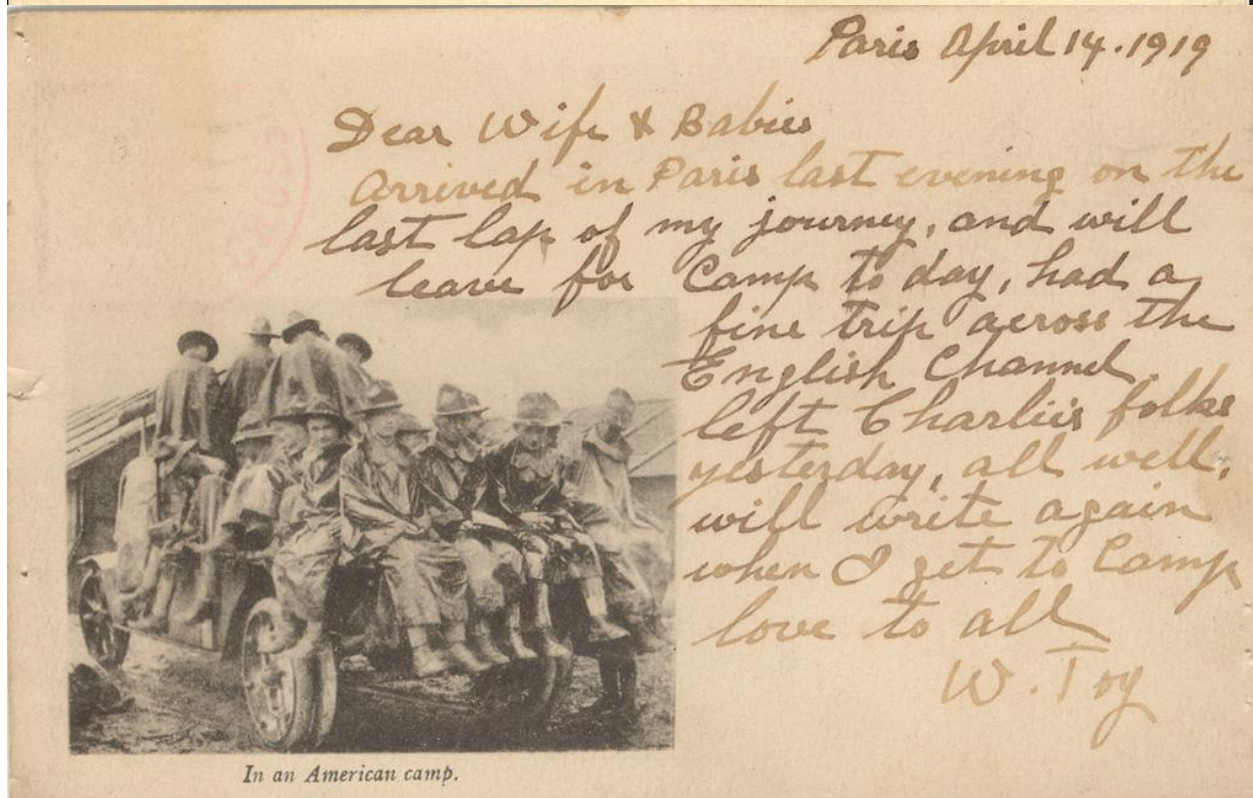 Paris April 14. 1919
Dear Wife & Babies
Arrived in Paris last evening on the
last lap of my journey, and will
leave for Camp to day, had a
fine trip across the
English Channel
left Charlie's folks
yesterday, all well,
will write again
when I get to Camp
love to all
W. Toy
In an American camp.